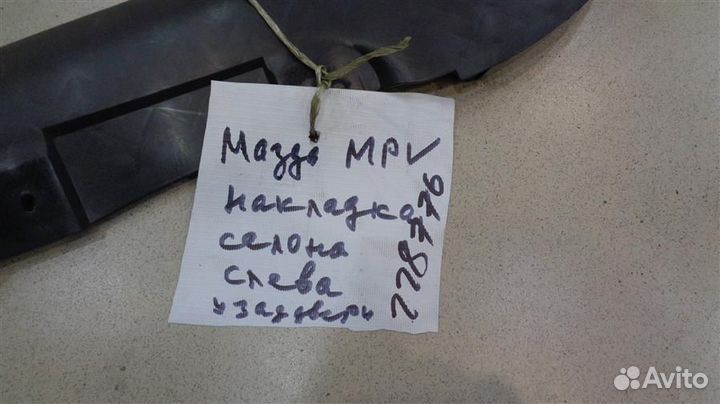 Мазда MPV
накладка
салона
слева
у зад двери
228776
Avito